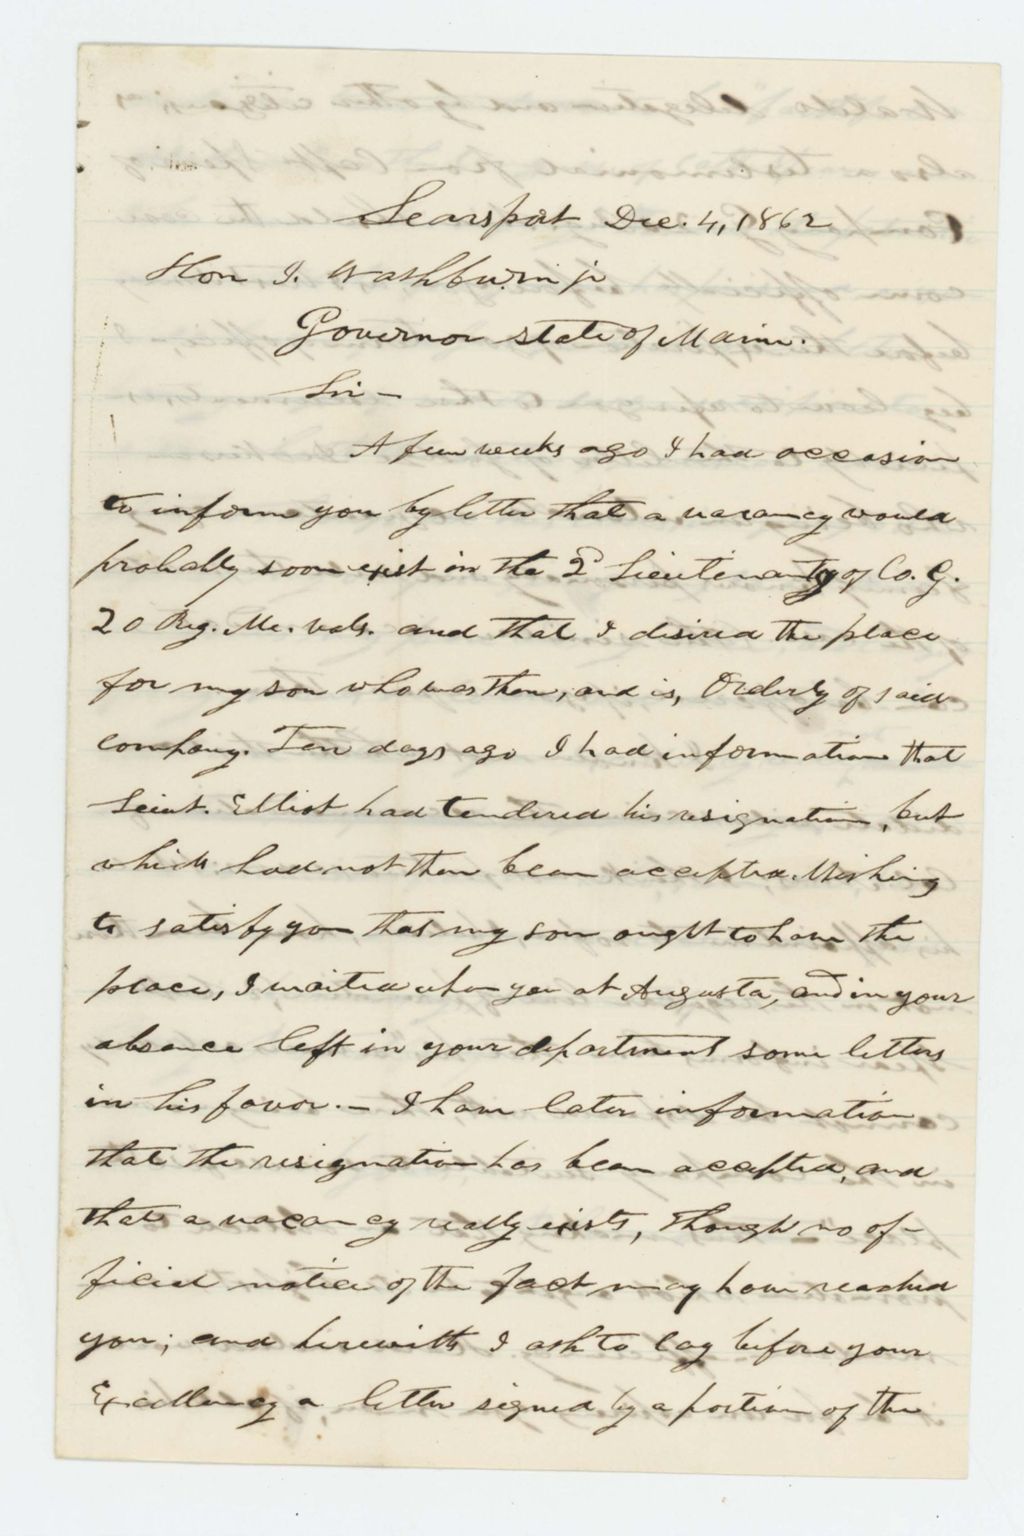 Searsport Dec. 4, 1862
Hon I. Washburn jr
Governor state of Maine.
Sir —
A few weeks ago I had occasion
to inform you by letter that a vacancy would
probably soon exist in the 2d Lieutenantcy of Co. G.
20 Reg. Me. Vols. and that I desired the place
for my son who was then, and is, Orderly of said
company. Ten days ago I had information that
Lieut. Elliot had tendered his resignation, but
which had not then been accepted. Wishing
to satisfy you that my son ought to have the
place, I waited upon you at Augusta, and in your
absence left in your department some letters
in his favor. — I have later information
that the resignation has been accepted, and
that a vacancy really exists, though no of-
ficial notice of the fact may have reached
you; and herewith I ask to lay before your
Excellency a letter signed by a portion of the